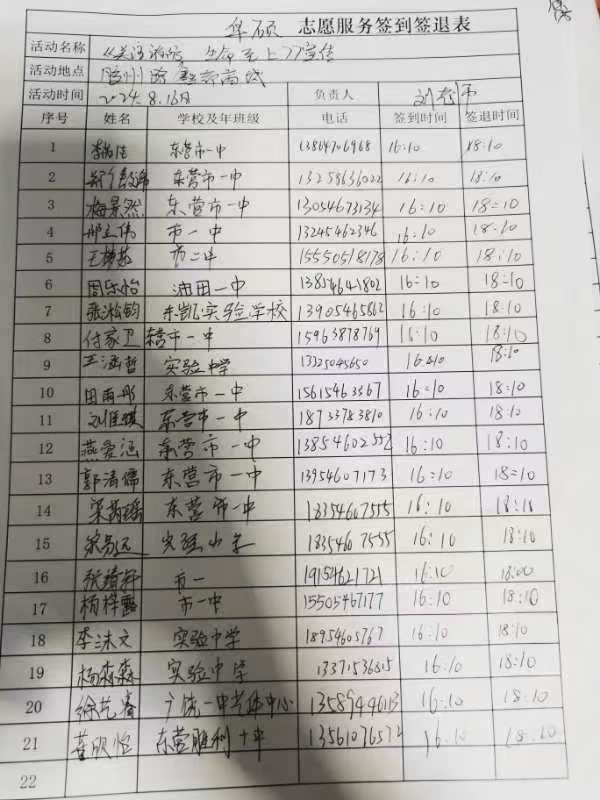 华硕 志愿服务签到签退表
活动名称 《关注消防 生命至上》宣传
活动地点
活动时间 2024.8.16日 负责人
序号 姓名 学校及年班级 电话 签到时间 签退时间
1 东营市一中 16:10 18:10
2 东营市一中 13258636022 16:10 18:10
3 梅景然 东营市一中 13054673134 16:10 18:10
4 市一中 13245462346 16:10 18:10
5 市二中 15550518178 16:10 18:10
6 周乐怡 油田一中 16:10 18:10
7 张淞钧 东凯实验学校 13905465862 16:10 18:10
8 付家卫 东营市一中 15963878769 16:10 18:10
9 王涵哲 实验中学 13325045650 16:10 18:10
10 田雨彤 东营市一中 15615463367 16:10 18:10
11 东营市一中 18733783810 16:10 18:10
12 燕爱涵 东营市一中 16:10 18:10
13 郭清儒 东营市一中 13954607173 16:10 18:10
14 东营市一中 18354607555 16:10 18:10
15 实验小学 18354607555 16:10 18:10
16 市一 19154621721 16:10 18:00
17 杨梓露 市一中 15505467177 16:10 18:10
18 李沫文 实验中学 18954605767 16:10 18:10
19 杨淼森 实验中学 13371536815 16:10 18:10
20 16:10 18:10
21 董欣怡 东营胜利十中 13561076572 16:10 18:10
22